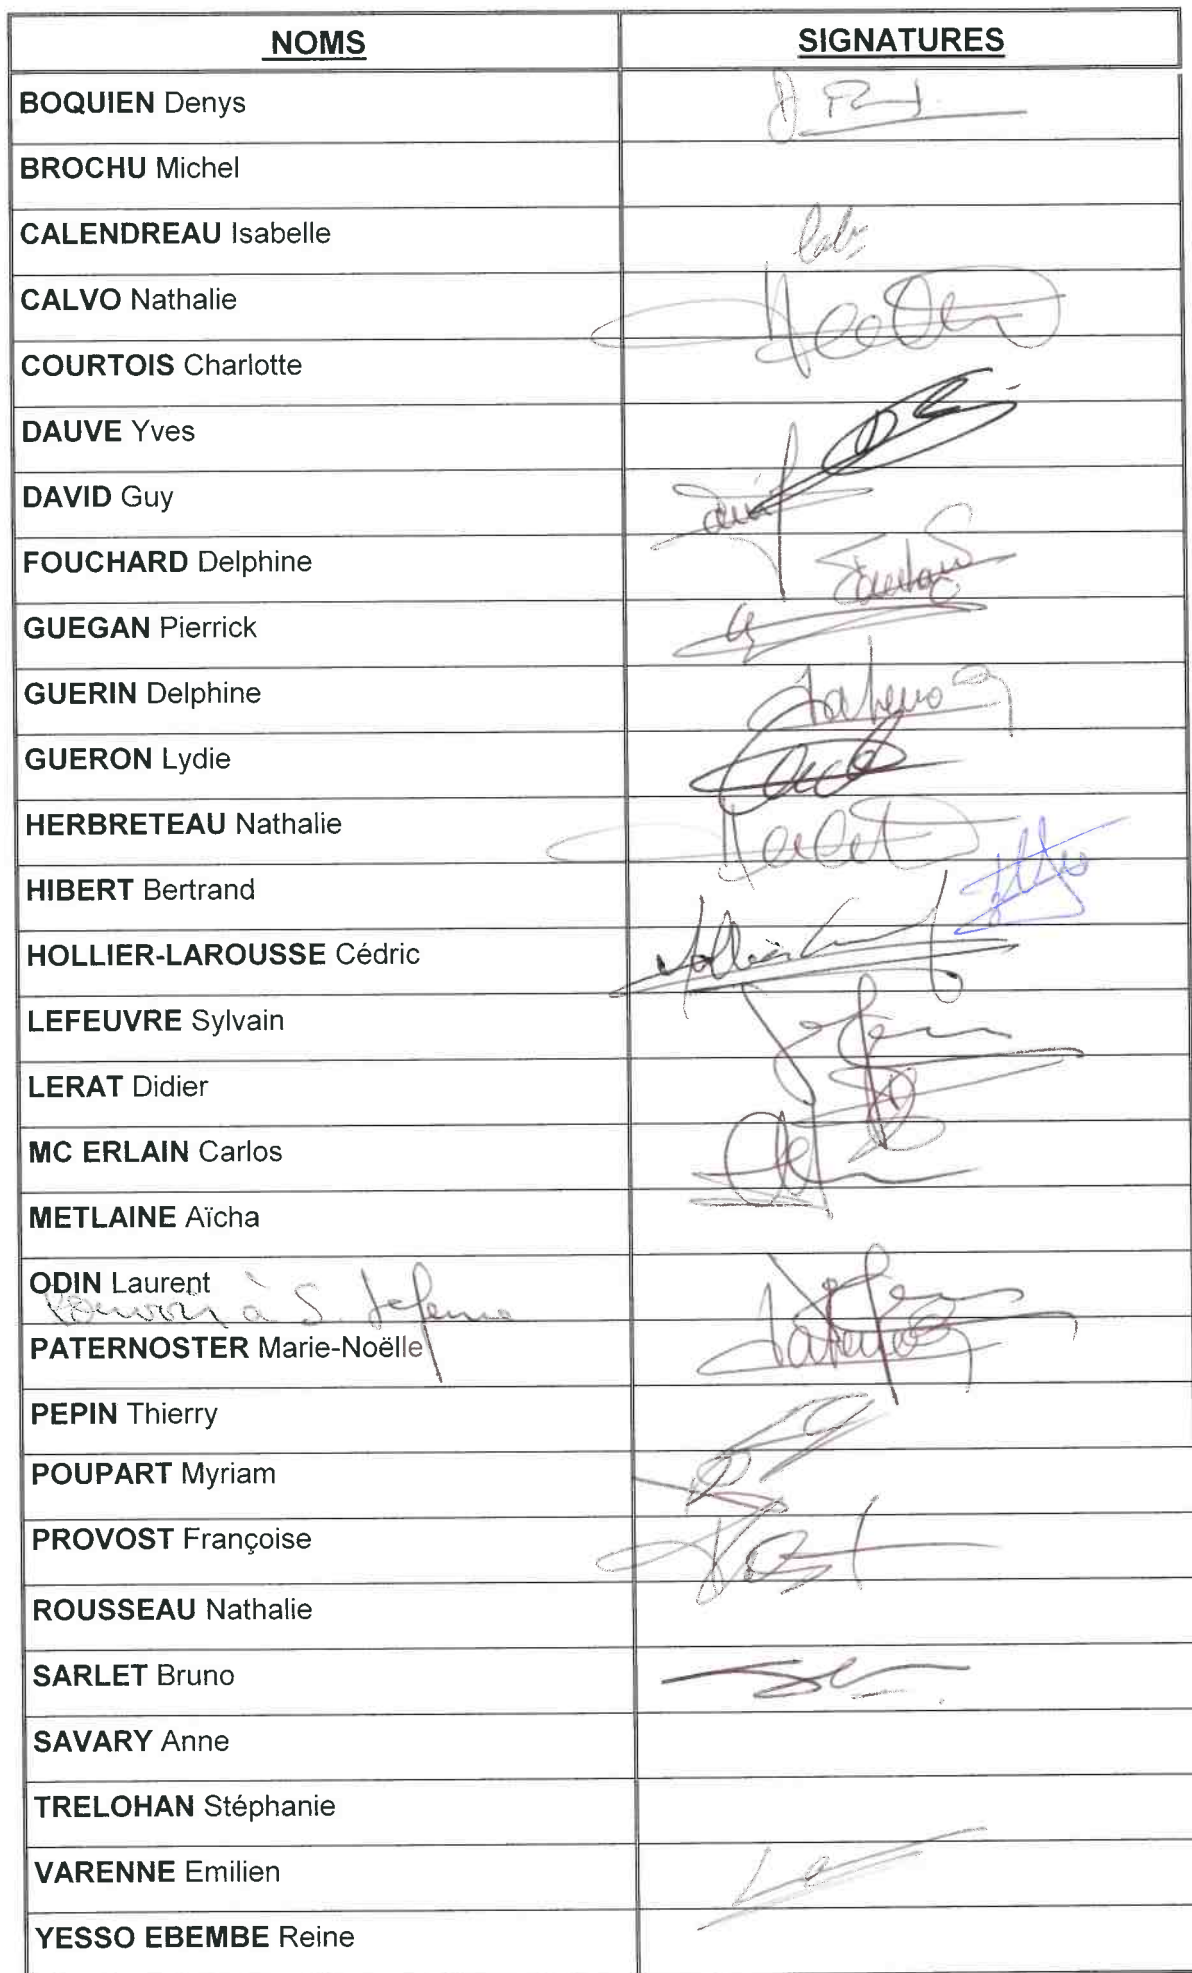 NOMS SIGNATURES
BOQUIEN Denys
BROCHU Michel
CALENDREAU Isabelle
CALVO Nathalie
COURTOIS Charlotte
DAUVE Yves
DAVID Guy
FOUCHARD Delphine
GUEGAN Pierrick
GUERIN Delphine
GUERON Lydie
HERBRETEAU Nathalie
HIBERT Bertrand
HOLLIER-LAROUSSE Cédric
LEFEUVRE Sylvain
LERAT Didier
MC ERLAIN Carlos
METLAINE Aïcha
ODIN Laurent
Pouvoir à S. Lefeuvre
PATERNOSTER Marie-Noëlle
PEPIN Thierry
POUPART Myriam
PROVOST Françoise
ROUSSEAU Nathalie
SARLET Bruno
SAVARY Anne
TRELOHAN Stéphanie
VARENNE Emilien
YESSO EBEMBE Reine